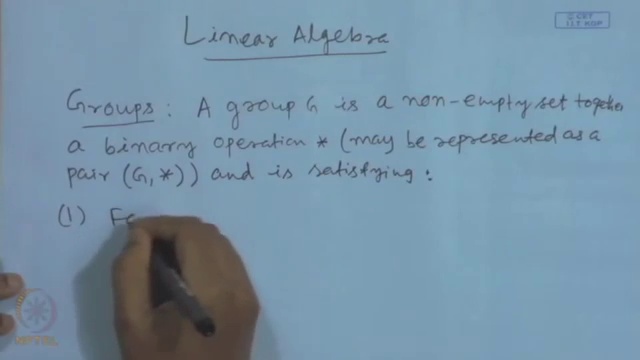 © CET
I.I.T. KGP
Linear Algebra
Groups : A group G is a non-empty set together
a binary operation * (may be represented as a
pair (G, *)) and is satisfying :
(1) Fo
NPTEL